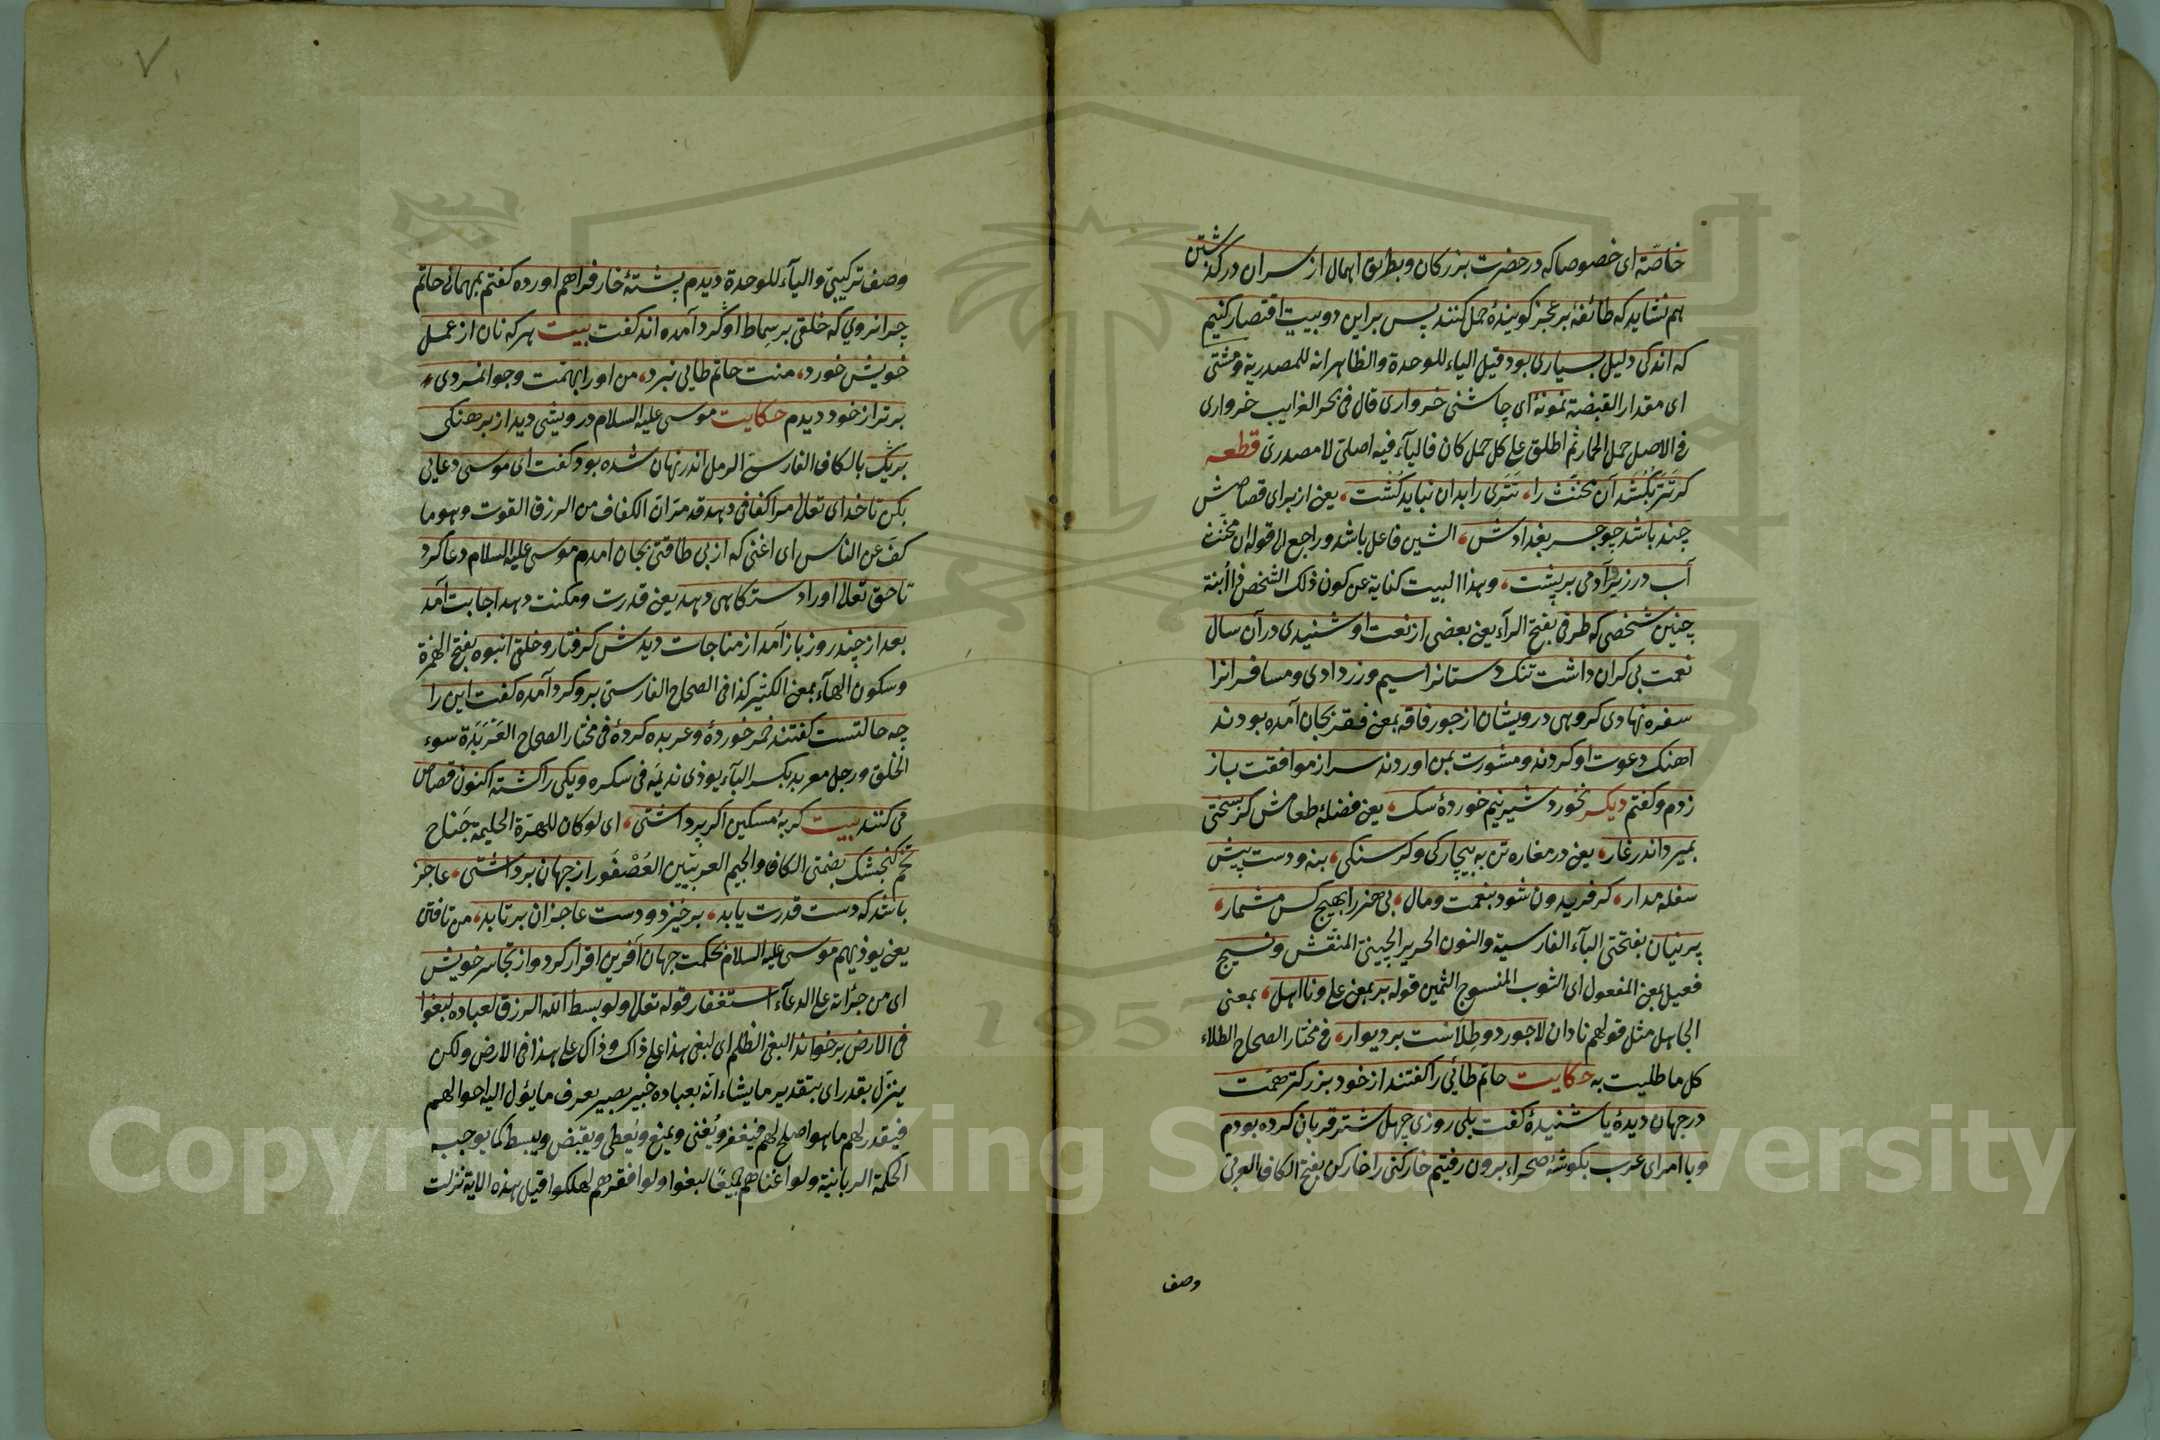 خاصّه ای خصوصا که در حضرت بزرکان و بطریق اهمال از سران در کذشتن
هم نشاید که طائفهٔ بر عجز کویندهٔ حمل کنند پس بر این دو بیت اقتصار کنیم
که اندکی دلیل بسیاری بود قیل الیاء للوحدة والظاهر انه للمصدریة و مشتی
ای مقدار القبضة نمونهٔ ای چاشنی خرواری قال فی بحر الغرایب خرواری
فی الاصل حمل الحمار ثم اطلق علی کل حمل کان فالیآء فیه اصلی لا مصدری قطعه
کر تتر بکشد آن مخنث را، تتری را بدان نباید کشت، یعنی از برای قصاصش
چند باشد چو جسر بغدادش، الشین فاعل باشد و راجع الی قوله ان مخنث
آب در زیر و آدمی بر پشت، و هذا البیت کنایة عن کون ذلک الشخص ذا ابنة
چنین شخصی که طرفی بفتح الرآء یعنی بعضی از نعت او شنیدی در آن سال
نعمت بی کران داشت تنک دستانرا سیم و زر دادی و مسافرانرا
سفره نهادی کروهی درویشان از جور فاقه بمعنی فقر بجان آمده بودند
اهنک دعوت او کردند و مشورت بمن اوردند سر از موافقت باز
زدم و کفتم دیکر نخورد شیر نیم خوردهٔ سک، یعنی فضلهٔ طعامش کز بسختی
بمیرد اندر غار، یعنی در مغاره تن به بیچارکی و کرسنکی، بنه و دست پیش
سفله مدار، کر فریدون شود بنعمت و مال، بی هنر را بهیچ کس مشمار،
پرنیان بفتحتی البآء الفارسیة والنون الحریر الچینی المنقش و نسیج
فعیل بمعنی المفعول ای الثوب المنسوج الثمین قوله بر بمعنی علی و نا اهل، بمعنی
الجاهل مثل قولهم نادان لاجورد و طلاست بر دیوار، فی مختار الصحاح الطلاء
کل ما طلیت به حکایت حاتم طائی را کفتند از خود بزرکتر همت
در جهان دیدهٔ یا شنیدهٔ کفت بلی روزی چهل شتر قربان کرده بودم
و با امرای عرب بکوشهٔ صحراء برون رفتیم خارکنی را خارکن بفتح الکاف العربی
وصف
وصف ترکیبی والیآء للوحدة دیدم پشتهٔ خار فراهم اورده کفتم بمهمانی حاتم
چرا نروی که خلقی بر سماط او کرد آمده اند کفت بیت هر که نان از عمل
خویش خورد، منت حاتم طایی نبرد، من او را بهمت و جوانمردی،
برتر از خود دیدم حکایت موسی علیه السلام درویشی دید از برهنکی
بریک بالکاف الفارسی الرمل اندر نهان شده بود کفت ای موسی دعایی
بکن تا خدای تعالی مرا کفافی دهد قد مر ان الکفاف من الرزق القوت و هو ما
کف عن الناس ای اغنی که از بی طاقتی بجان امدم موسی علیه السلام دعا کرد
تا حق تعالی او را دستکاهی دهد یعنی قدرت و مکنت دهد اجابت آمد
بعد از چند روز باز آمد از مناجات دیدش کرفتار و خلقی انبوه بفتح الهمزة
و سکون الهآء بمعنی الکثیر کذا فی الصحاح الفارسی برو کرد آمده کفت این را
چه حالتست کفتند خمر خوردهٔ و عربده کردهٔ فی مختار الصحاح العَرْبَدَة سوء
الخلق و رجل معربد بکسر البآء یوذی ندیمه فی سکره و یکی را کشته اکنون قصاص
می کنند بیت کربهٔ مسکین اکر پر داشتی، ای لو کان للهرّة الحلیمة جناح
تخم کنجشک بضمتی الکاف والجیم العربیین العُصْفُور از جهان برداشتی، عاجز
باشد که دست قدرت یابد، برخیزد و دست عاجزان برتابد، من تافتن
یعنی یوذیهم موسی علیه السلام بحکمت جهان آفرین اقرار کرد و از تجاسر خویش
ای من جرأته علی الدعآء استغفار قوله تعالی ولو بسط الله الرزق لعباده لبغوا
فی الارض بر خواند البغی الظلم ای لبغی هذا علی ذاک و ذاک علی هذا فی الارض ولکن
ینزل بقدر ای بتقدیر ما یشاء انه بعباده خبیر بصیر یعرف ما یؤل الیه احوالهم
فیقدر لهم ما هو اصلح لهم فیفقر و یُغنی و یمنع و یُعطی و یقبض و یبسط کما یوجبه
الحکمة الربانیة ولو اغناهم جمیعًا لبغوا ولو افقرهم لهلکوا قیل هذه الایة نزلت
Copyright © King Saud University
1957
٧